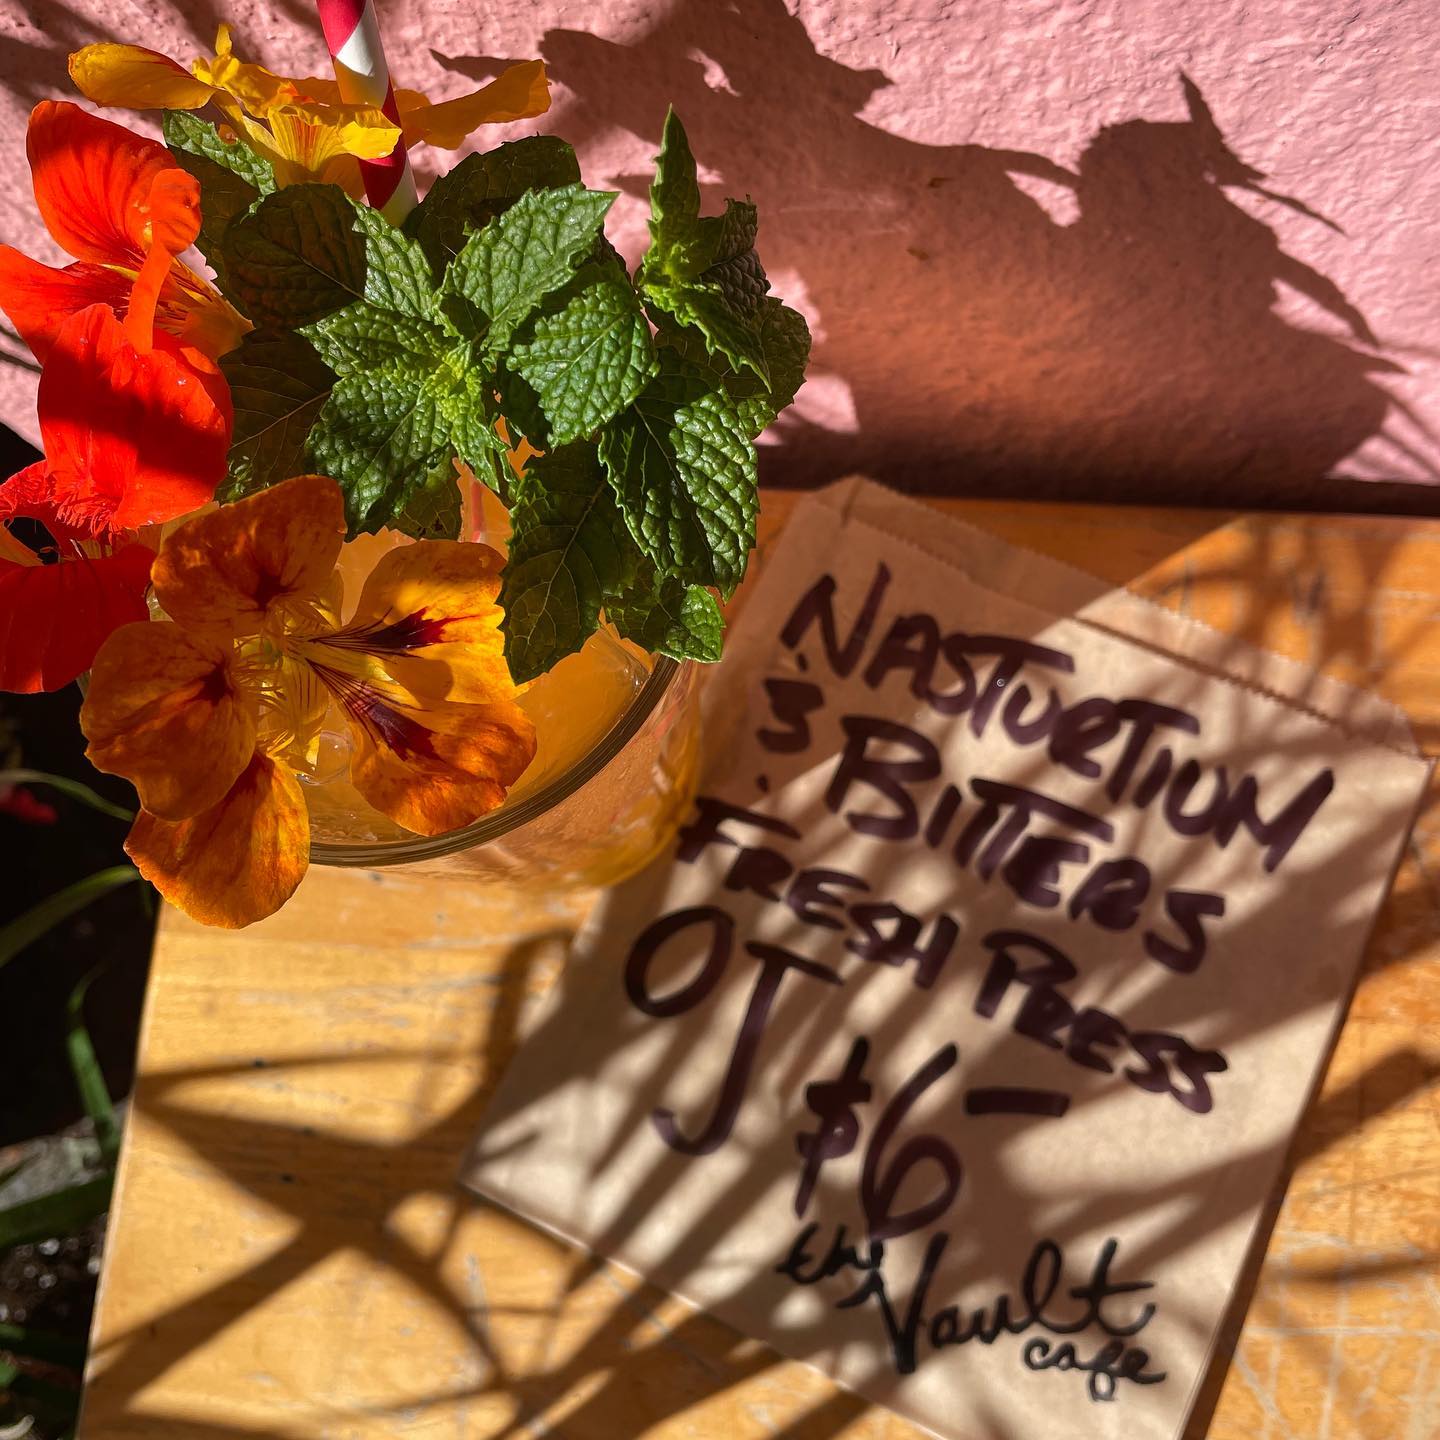 NASTURTIUM
& BITTERS
FRESH PRESS
OJ $6-
the Vault
cafe